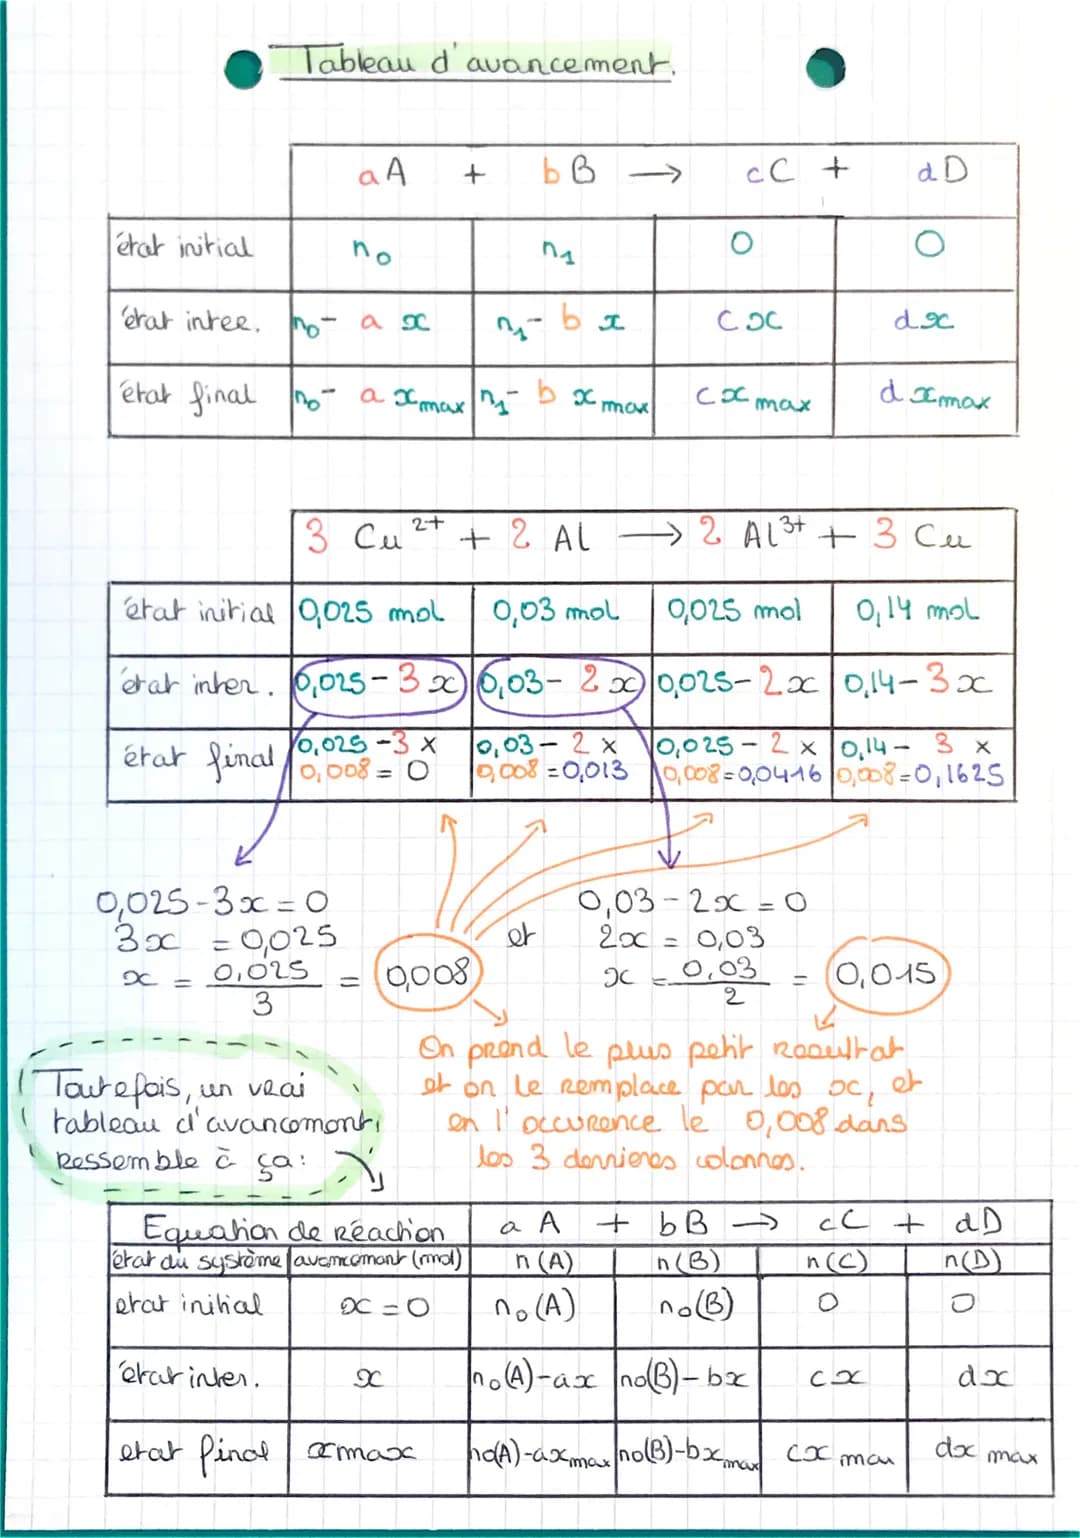 Tableau d'avancement.
aA + bB → cC + dD
état initial n₀ n₁ 0 0
état inter. n₀- a x n₁- b x cx dx
état final n₀- a xmax n₁- b xmax cxmax dxmax
3 Cu²⁺ + 2 Al → 2 Al³⁺ + 3 Cu
état initial 0,025 mol 0,03 mol 0,025 mol 0,14 mol
état inter. 0,025-3x 0,03-2x 0,025-2x 0,14-3x
état final 0,025-3 x 0,03-2 x 0,025-2 x 0,14- 3 x
0,008 = 0 0,008 =0,013 0,008=0,0416 0,008=0,1625
0,025-3x=0 0,03-2x=0
3x =0,025 et 2x = 0,03
x = 0,025/3 = 0,008 x = 0,03/2 = 0,015
On prend le plus petit résultat
et on le remplace par les x, et
en l'occurence le 0,008 dans
les 3 dernieres colonnes.
Toutefois, un vrai
tableau d'avancement,
Ressemble à ça:
Equation de Réaction a A + bB → cC + dD
état du système avancement (mol) n(A) n(B) n(C) n(D)
etat initial x=0 n₀(A) n₀(B) 0 0
état inter. x n₀(A)-ax n₀(B)-bx cx dx
etat final xmax n₀(A)-axmax n₀(B)-bxmax cx max dx max